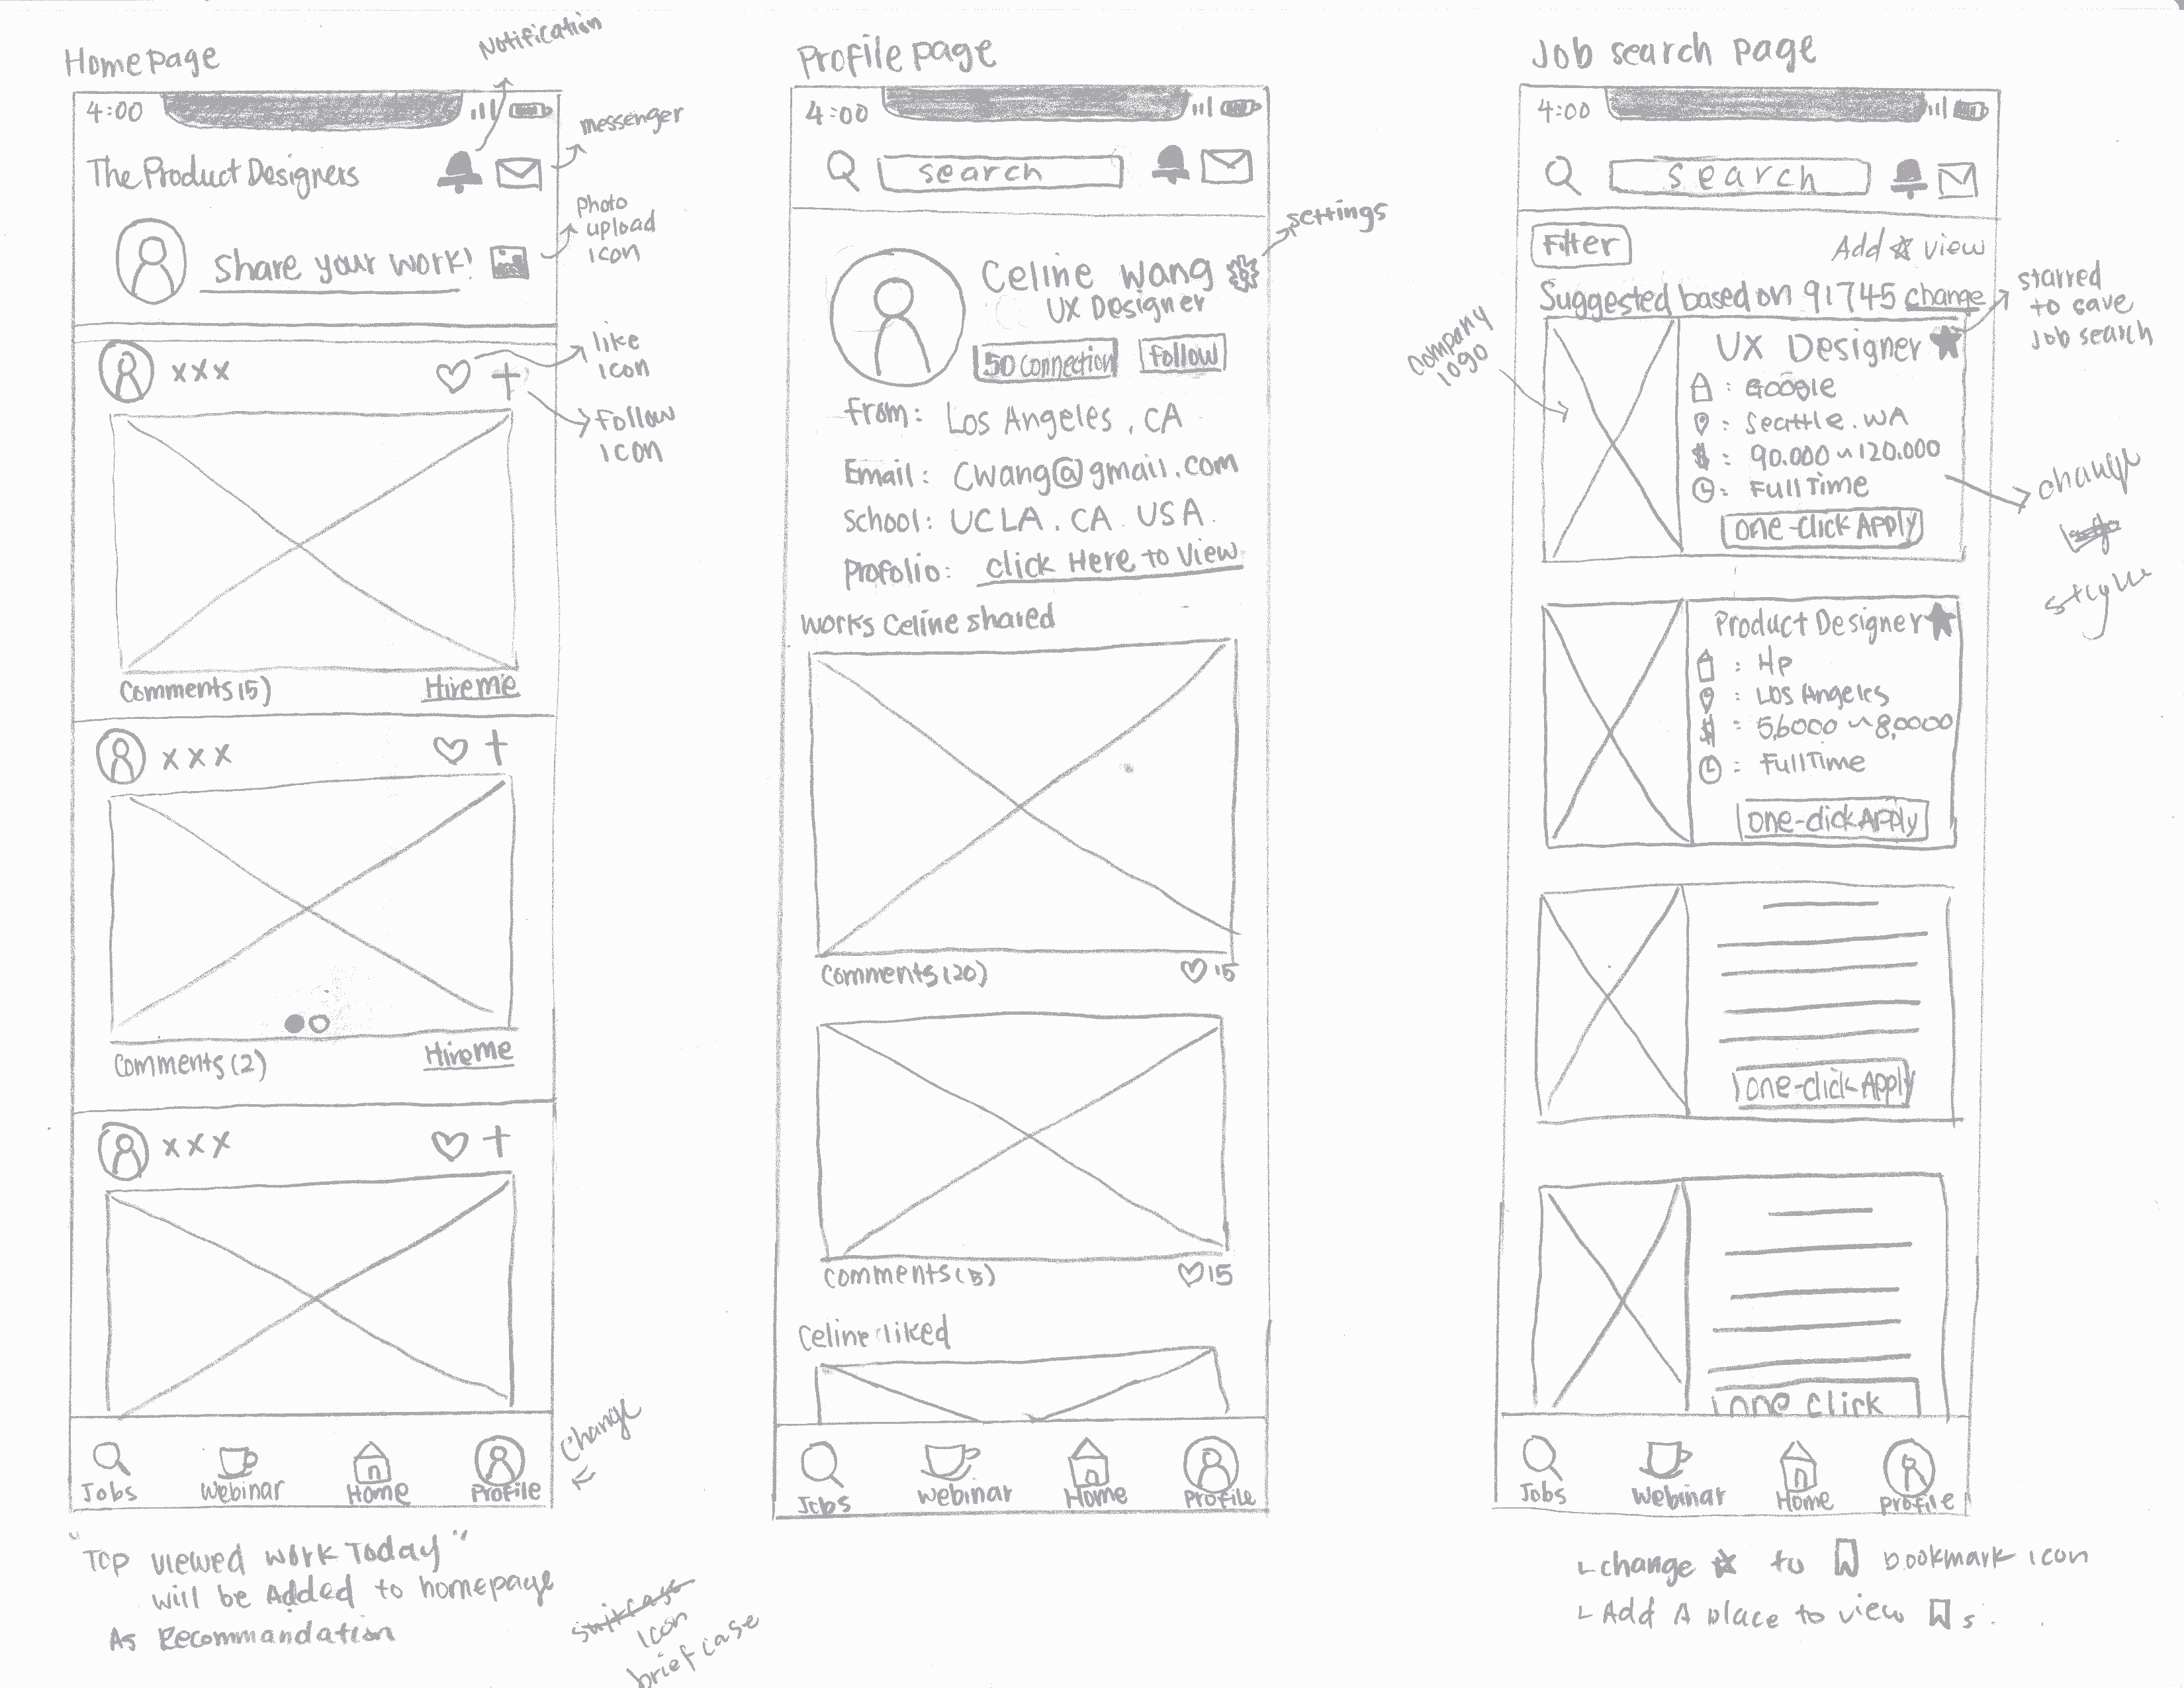 Homepage
Notification
4:00
messenger
The Product Designers
photo
upload
icon
share your work!
xxx
like
icon
Follow
icon
Comments (5)
Hire me
xxx
Comments (2)
Hire me
xxx
Change
Jobs
Webinar
Home
Profile
"Top viewed work Today"
will be Added to homepage
As Recommandation
icon
briefcase
Profile page
4:00
search
settings
Celine Wang
UX Designer
50 connection
Follow
From: Los Angeles, CA
Email: Cwang@gmail.com
School: UCLA. CA. USA.
Profolio: click Here to View
Works Celine shared
Comments (20)
15
Comments (5)
15
Celine liked
Jobs
Webinar
Home
Profile
Job search page
4:00
search
Filter
Add ☆ view
Suggested based on 91745 change
starred
to save
Job search
company
logo
UX Designer
: Google
: Seattle. WA
$ : 90.000 ~ 120.000
: Full Time
one-click Apply
change
style
Product Designer
: Hp
: Los Angeles
$ : 5,6000 ~ 8,0000
: Full Time
one-click Apply
one-click Apply
one click
Jobs
Webinar
Home
Profile
change ☆ to bookmark icon
Add A place to view s.